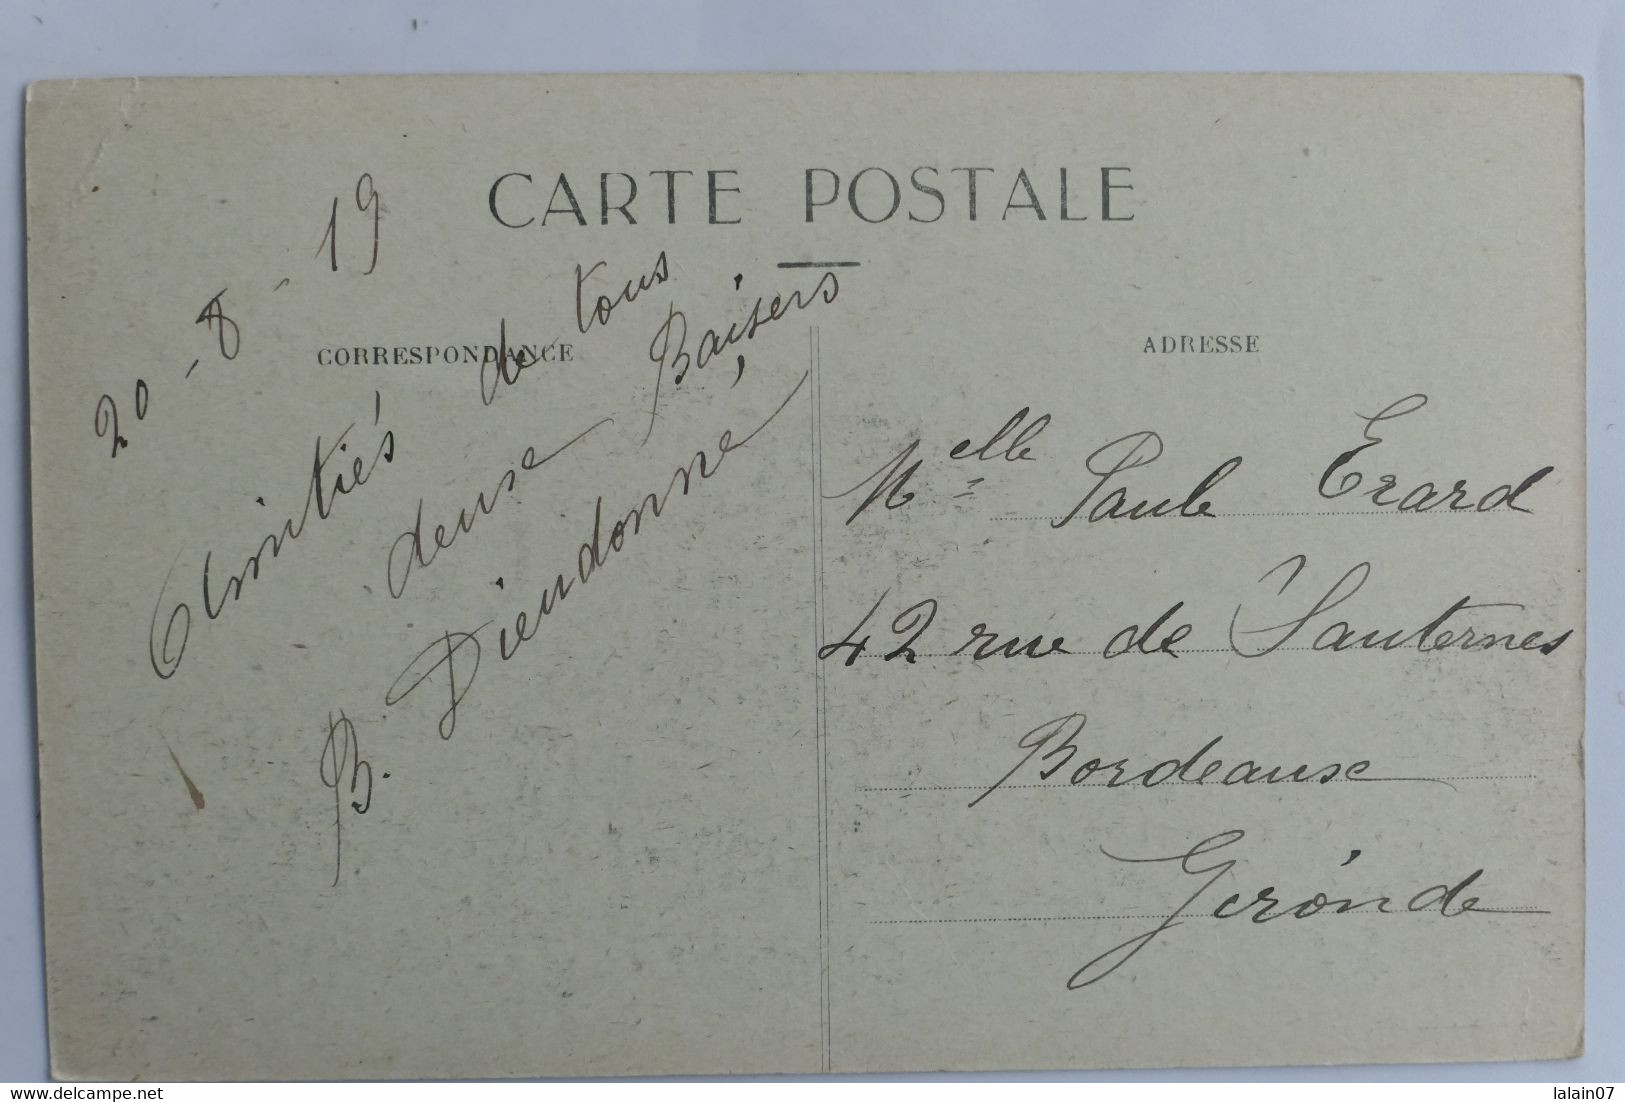 CARTE POSTALE
CORRESPONDANCE
20-8-19
Amitiés de tous
deux Baisers
B. Dieudonné
ADRESSE
Melle Paule Erard
42 rue de Sauternes
Bordeaux
Gironde
www.delcampe.net
lalain07